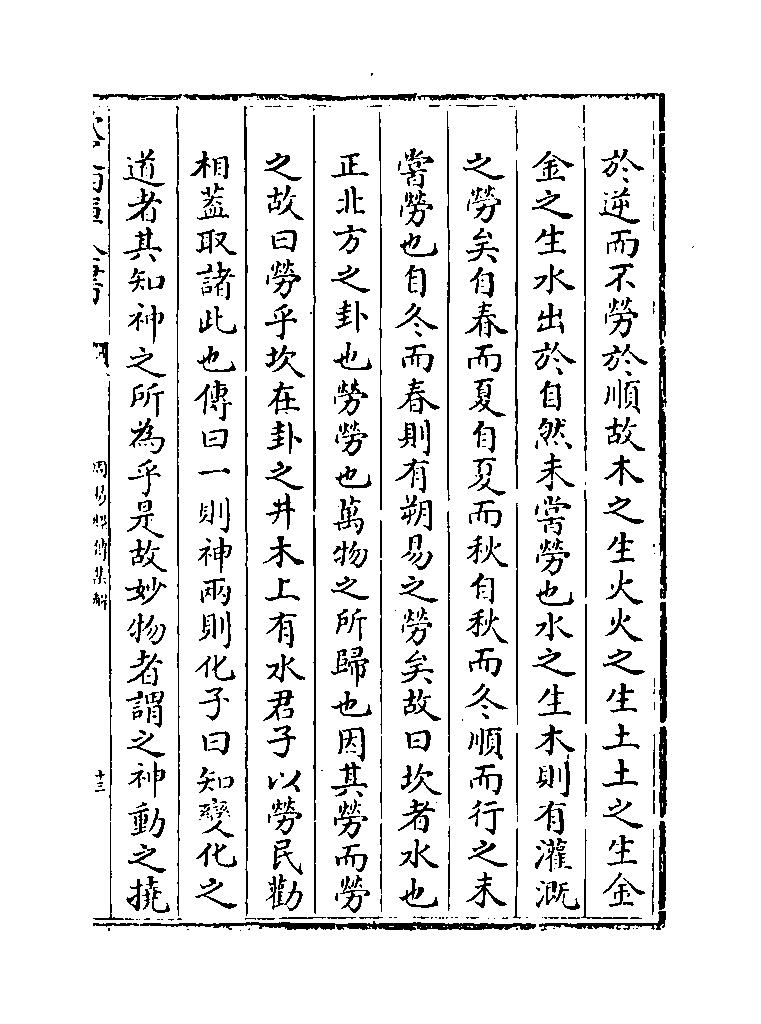 於逆而不勞於順故木之生火火之生土土之生金
金之生水出於自然未嘗勞也水之生木則有灌溉
之勞矣自春而夏自夏而秋自秋而冬順而行之未
嘗勞也自冬而春則有朔易之勞矣故曰坎者水也
正北方之卦也勞勞也萬物之所歸也因其勞而勞
之故曰勞乎坎在卦之井木上有水君子以勞民勸
相葢取諸此也傳曰一則神兩則化子曰知變化之
道者其知神之所為乎是故妙物者謂之神動之撓
周易經傳集解
十三